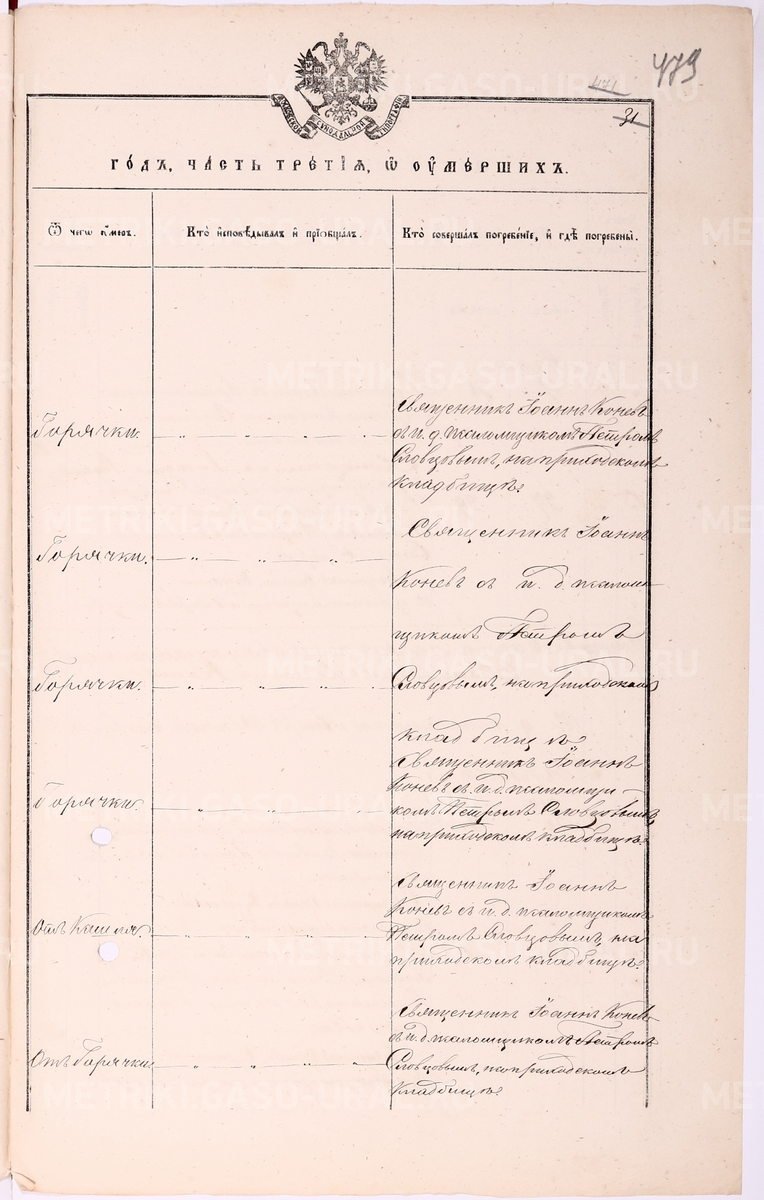 479
471
31
годъ, часть третїѧ, ѡ оумершихъ.
Ѿ чегѡ оумеръ.
Кто исповѣдывалъ и прїобщалъ.
Кто совершалъ погребенїе, и гдѣ погребены.
Горячки.
Священникъ Іоаннъ Коневъ
съ и. д. псаломщикомъ Петромъ
Словцовымъ, на приходскомъ
кладбищѣ.
Горячки.
Священникъ Іоаннъ
Коневъ съ и. д. псалом-
щикомъ Петромъ
Горячки.
Словцовымъ, на приходскомъ
кладбищѣ.
Горячки.
Священникъ Іоаннъ
Коневъ съ и. д. псаломщи-
комъ Петромъ Словцовымъ,
на приходскомъ кладбищѣ.
Отъ Кашля.
Священникъ Іоаннъ
Коневъ съ и. д. псаломщикомъ
Петромъ Словцовымъ, на
приходскомъ кладбищѣ.
Отъ Горячки.
Священникъ Іоаннъ Коневъ
съ и. д. псаломщикомъ Петромъ
Словцовымъ, на приходскомъ
кладбищѣ.
METRIKI.GASO-URAL.RU